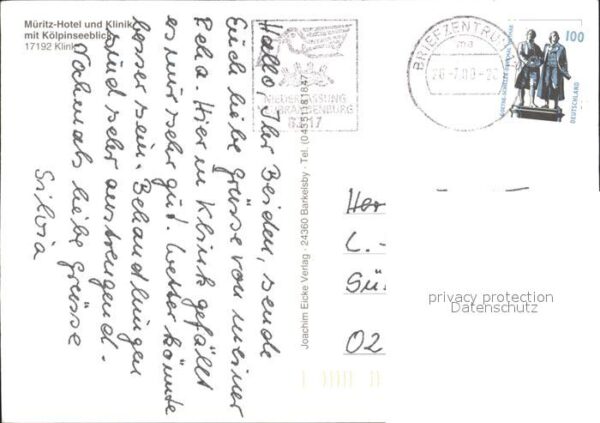 Müritz-Hotel und Klinik
mit Kölpinseeblick
17192 Klink
Hallo, Ihr Beiden, sende
Euch liebe Grüsse von meiner
Reha. Hier in Klink gefällt
es mir sehr gut. Wetter könnte
besser sein. Behandlungen
sind sehr anstrengend.
Nochmals liebe Grüsse
Silvia
Joachim Eicke Verlag · 24360 Barkelsby · Tel. (04351) 81847
NIEDERLASSUNG
NEUBRANDENBURG
BRIEFZENTRUM
ma
100
DEUTSCHLAND
Her
L. -
Sü
02
privacy protection
Datenschutz